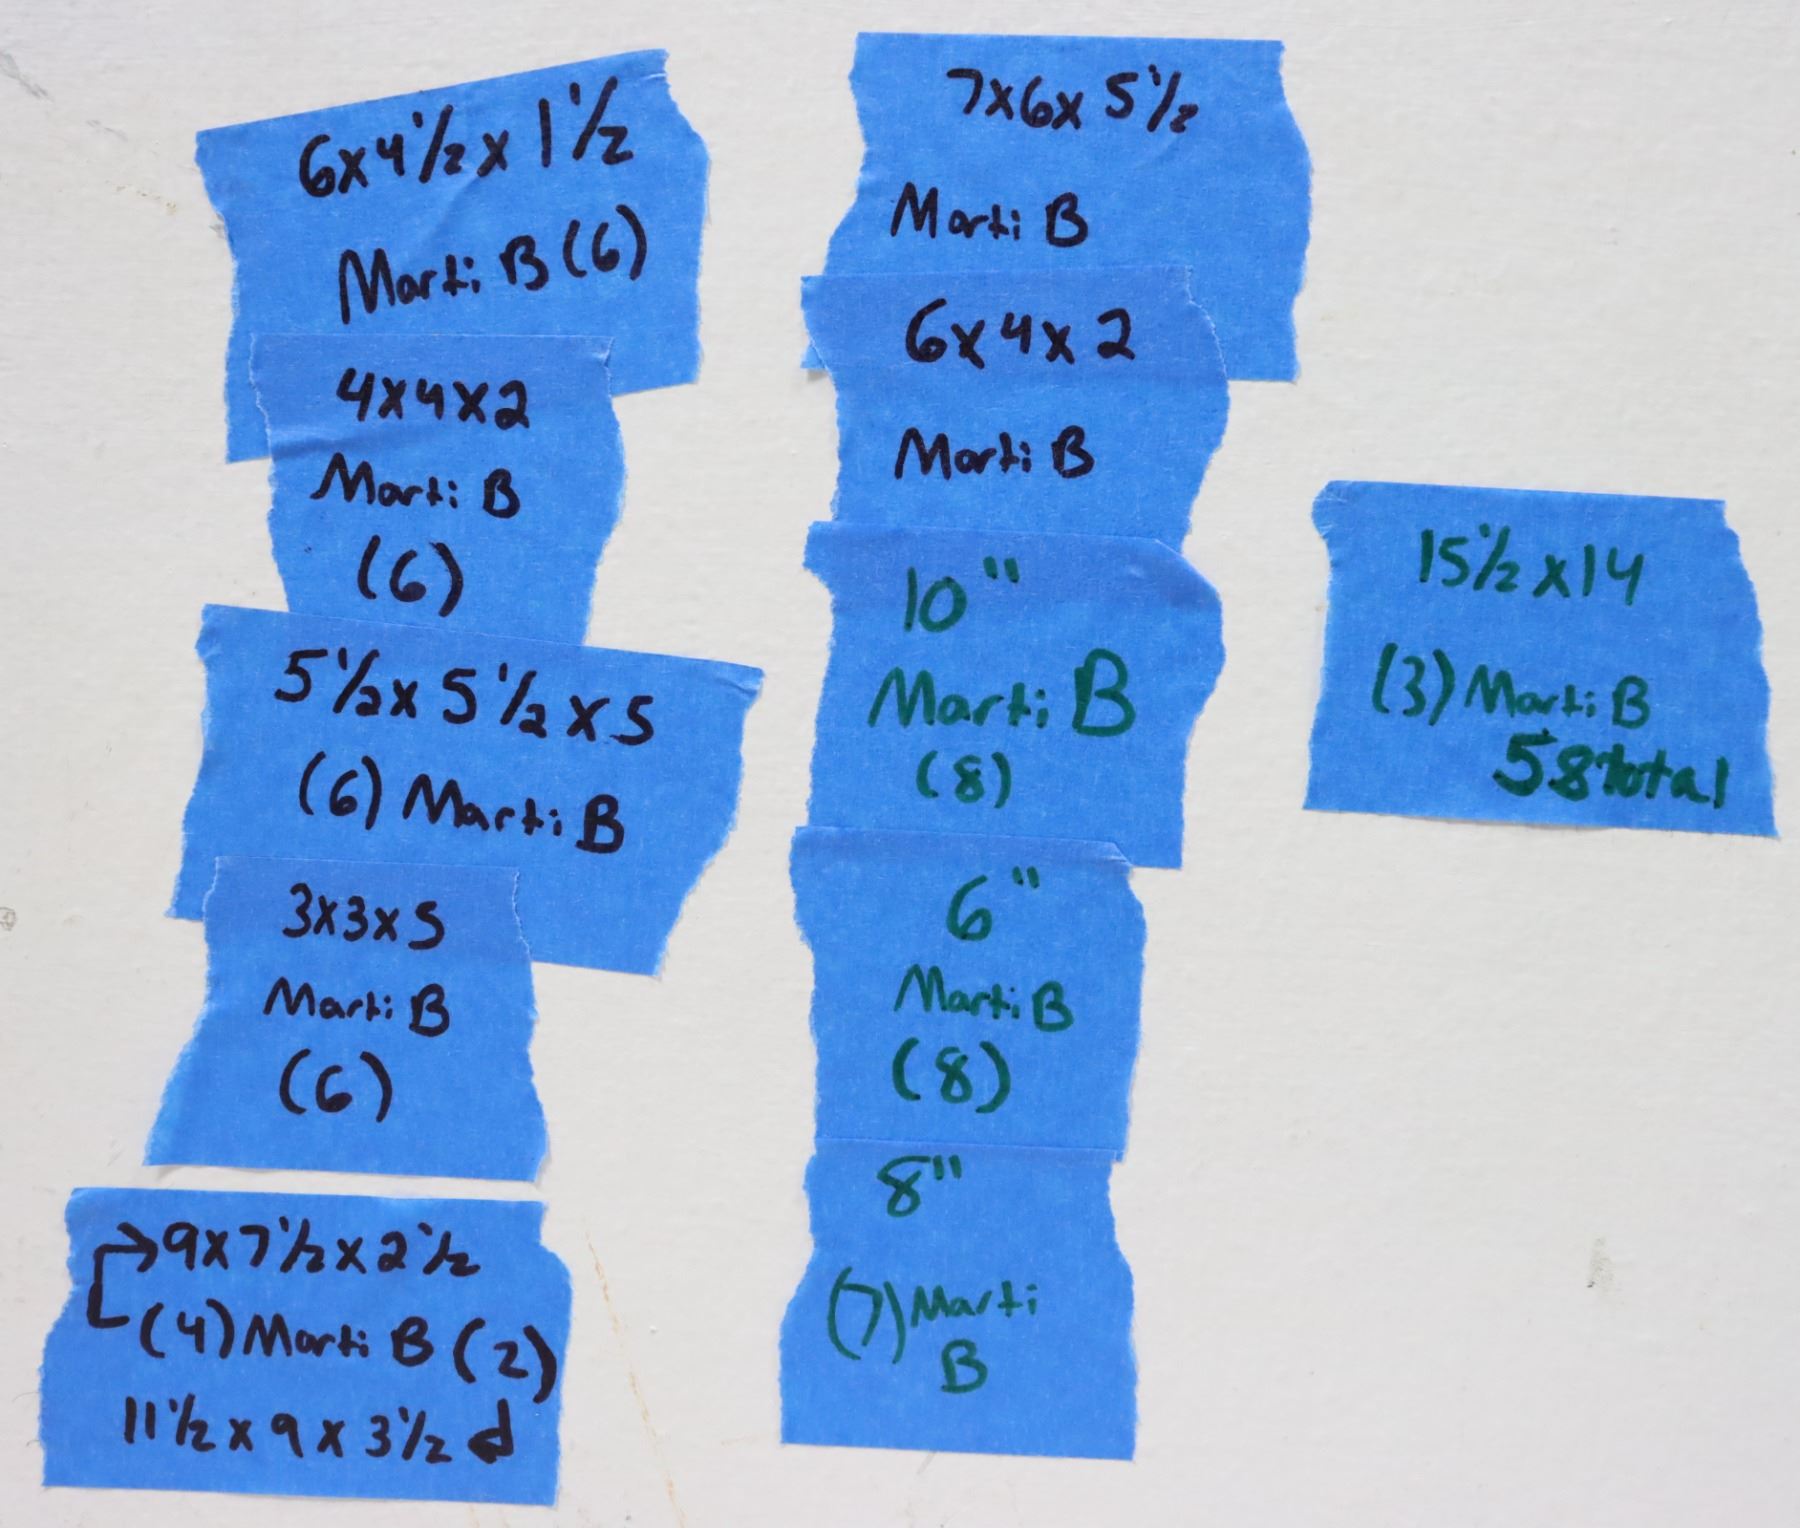 6x4 1/2 x 1 1/2
Marti B (6)
4x4x2
Marti B
(6)
5 1/2 x 5 1/2 x 5
(6) Marti B
3x3x5
Marti B
(6)
→9x7 1/2 x 2 1/2
(4) Marti B (2)
11 1/2 x 9 x 3 1/2
7x6x 5 1/2
Marti B
6x4x2
Marti B
10"
Marti B
(8)
6"
Marti B
(8)
8"
(7) Marti
B
15 1/2 x 14
(3) Marti B
58 total